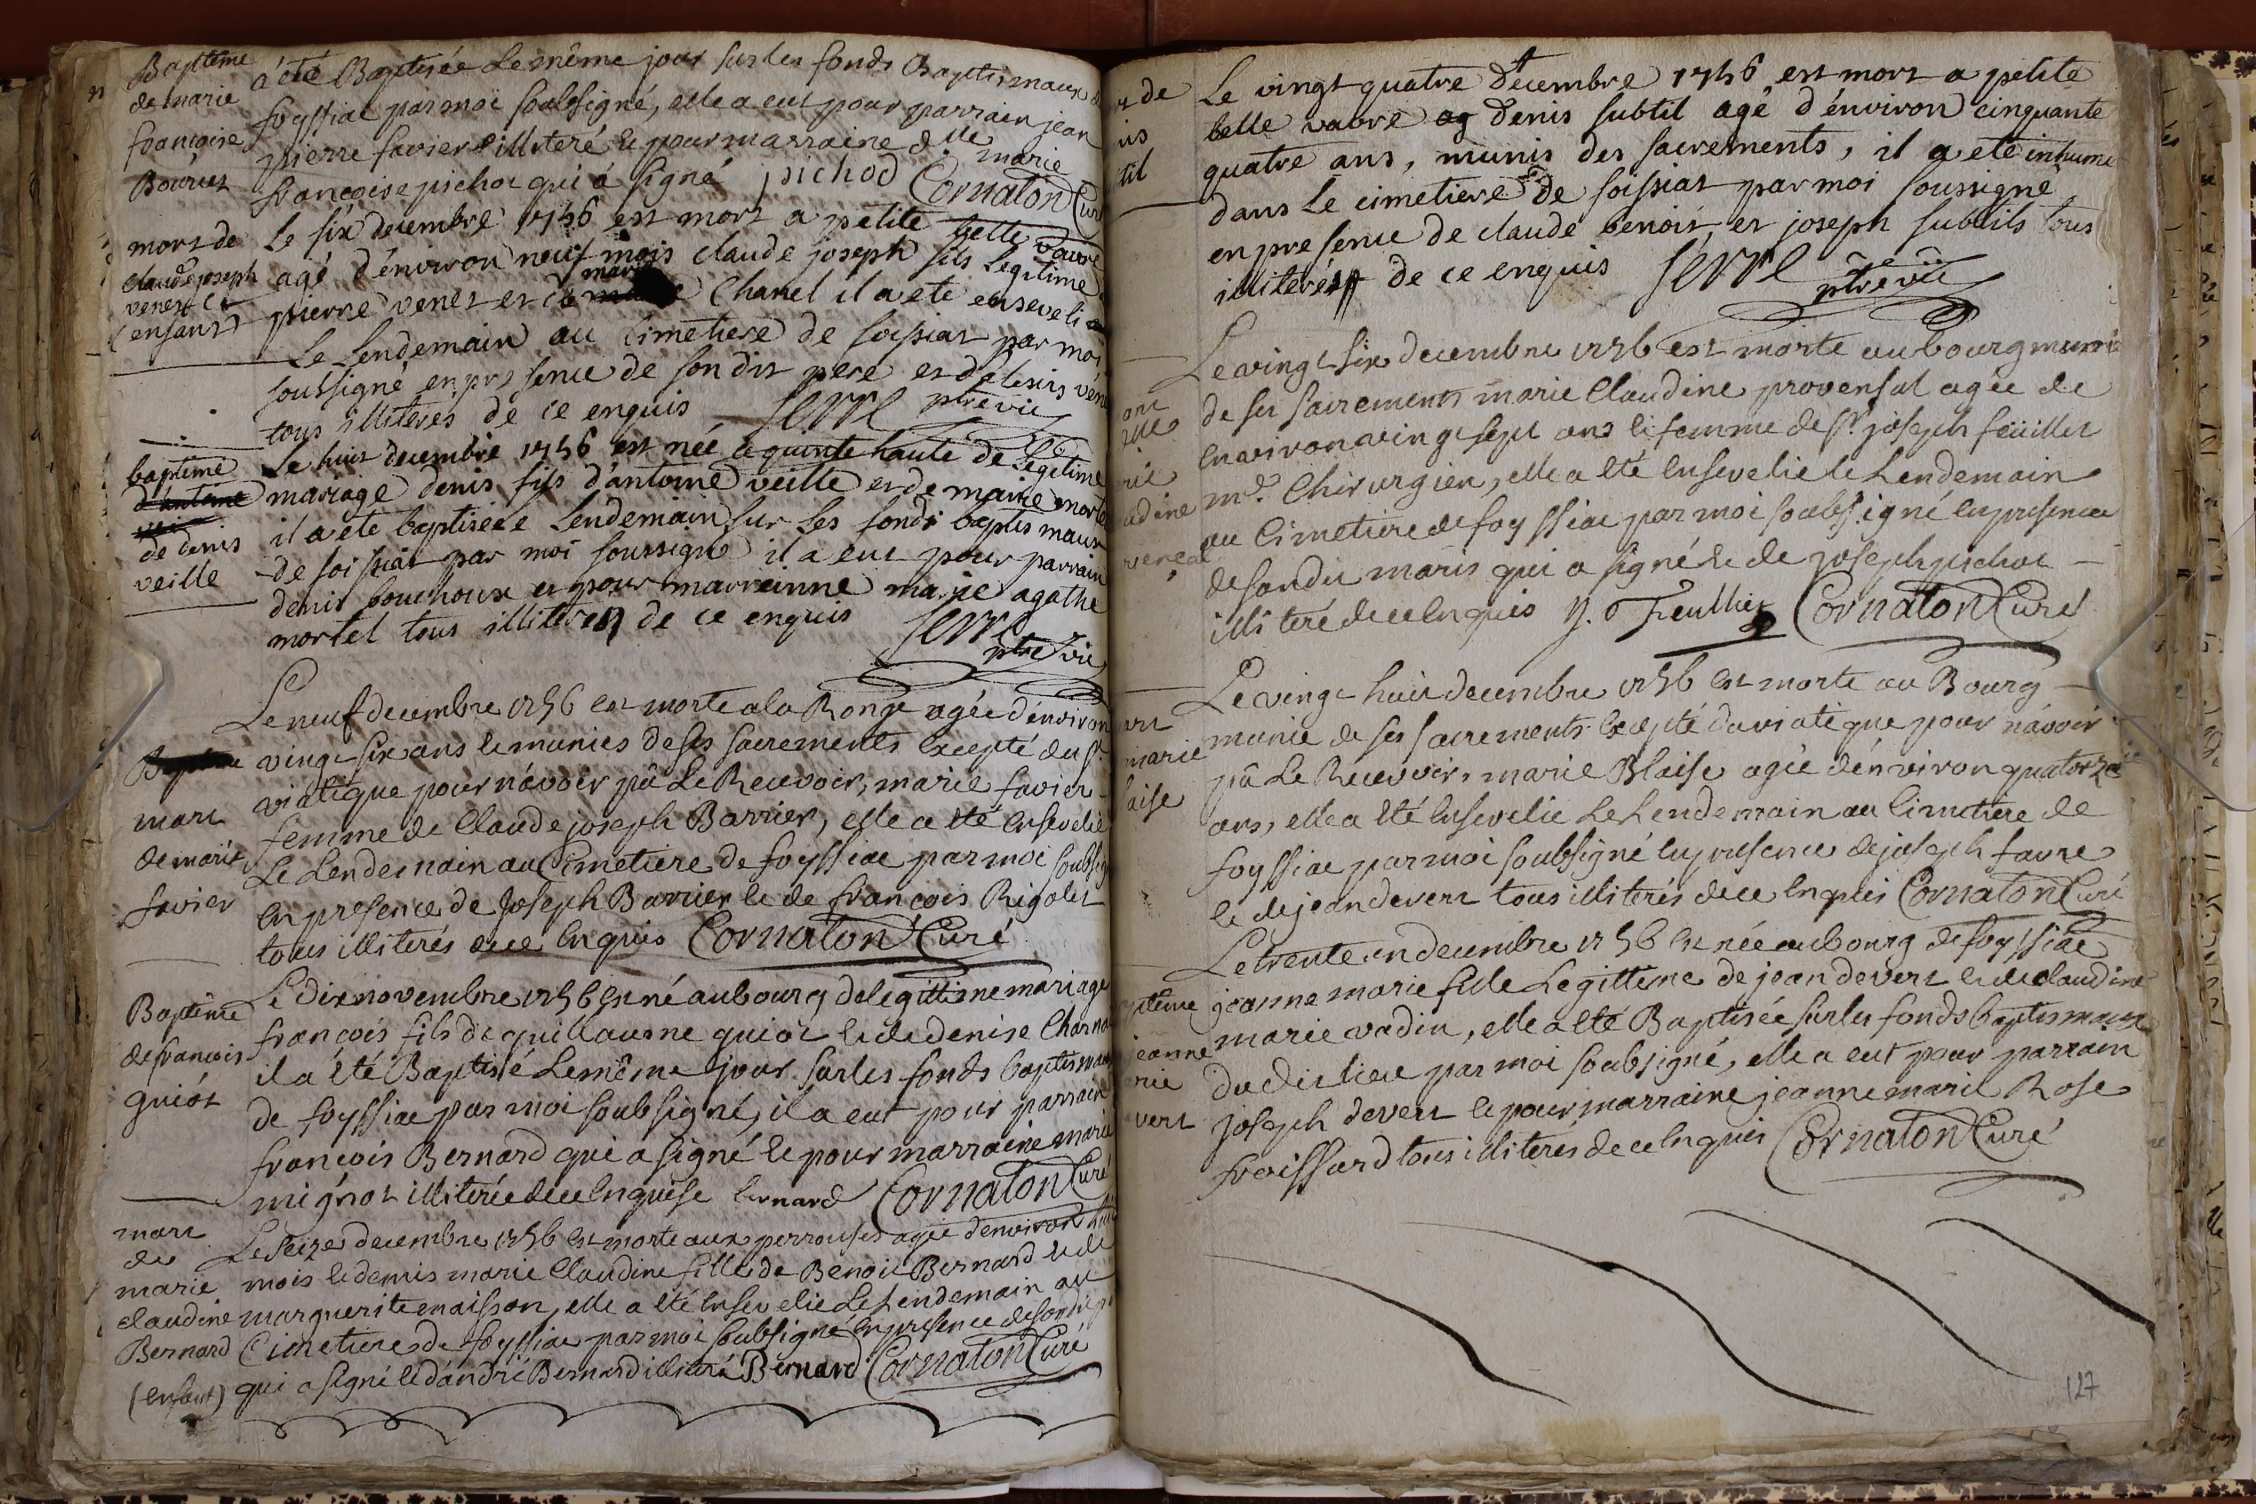 Bapteme
de marie
françoise
Bouriez
a été Baptisée Le même jour sur les fonds Baptismaux
foyssiat par moi soubsigné, elle a eut pour parrain jean
pierre favier illiteré le pour marraine dlle marie
françoise pichot qui a signé pichod Cornaton Curé
mort de
claude joseph
venet
(enfant)
Le six decembre 1756 est mort a petite belle vavre
agé d'énviron neuf mois claude joseph fils Legitime
pierre venet et de marie Chanel il a eté enseveli
Le Lendemain au cimetiere de foissiat par moi
soussigné en presence de son dit pere et de
tous illiteres de ce enquis Serre ptre vic
baptême
de denis
veille
Le huit decembre 1756 est née a quinte haute de Legitime
mariage denis fils d'antoine veille et de marie mortel
il a eté baptisée le Lendemain sur Les fonds baptismaux
de foissiat par moi soussigné il a eut pour parrain
denis bouchoux et pour marreinne marie agathe
mortel tous illiteres de ce enquis Serre
ptre vic
mort
de marie
favier
Le neuf decembre 1756 est morte a la Ronge agée d'énviron
vingt six ans le munies de ses sacrements Excepté du st
viatique pour n'avoir pû Le Recevoir, marie favier
femme de Claude joseph Barrier, elle a été Ensevelie
Le Lendemain au Cimetiere de foyssiat par moi soubsigné
En presence de Joseph Barrier le de françois Rigolet
tous illiterés de ce Enquis Cornaton Curé
Baptême
de francois
guiót
Le dix novembre 1756 Est né au bourg de legittime mariage
françois fils de guillaume guiot le de denise Charna
il a été Baptisé Le même jour sur les fonds baptismaux
de foyssiat par moi soubsigné, il a eut pour parrain
françois Bernard qui a signé le pour marraine marie
mignot illiterée de ce Enquise bernard Cornaton Curé
mort
de
marie
claudine
Bernard
(Enfant)
Le Seize decembre 1756 Est morte aux perrouses agée d'environ huit
mois le demis marie Claudine fille de Benoit Bernard le de
marguerite maisson, elle a été Ensevelie Le Lendemain au
Cimetiere de foyssiat par moi soubsigné En presence de son dit pere
qui a signé le d'andré Bernard illiteré Bernard Cornaton Curé
Le vingt quatre decembre 1756 est mort a petite
belle vavre denis subtil agé d'énviron cinquante
quatre ans, munis des sacrements, il a eté inhumé
dans Le cimetiere de foissiat par moi soussigné
en presence de claude benoit et joseph subtils tous
illiterés de ce enquis Serre ptre vic
Le vingt six decembre 1756 est morte au bourg munie
de ses sacrements marie Claudine provensal agée de
Environ vingt sept ans le femme de Sr joseph feüillet
me Chirurgien, elle a été Ensevelie le Lendemain
au Cimetiere de foyssiat par moi soubsigné En presence
de son dit maris qui a signé le de joseph pichot
illiteré de ce Enquis J. Feullier Cornaton Curé
marie
Le vingt huit decembre 1756 Est morte au Bourg
munie de ses sacrements Excepté du viatique pour n'avoir
pû Le Recevoir, marie Blaise agée d'énviron quatorze
ans, elle a été Ensevelie Le Lendemain au Cimetiere de
foyssiat par moi soubsigné En presence de joseph favre
le de jean devert tous illiterés de ce Enquis Cornaton Curé
jeanne
Le trente un decembre 1756 Est née au bourg de foyssiat
jeanne marie fille Legittime de jean devert le de claudine
marie vadin, elle a été Baptisée sur les fonds baptismaux
du dit lieu par moi soubsigné, elle a eut pour parrain
joseph devert le pour marraine jeanne marie Rose
froissard tous illiterés de ce Enquis Cornaton Curé
127